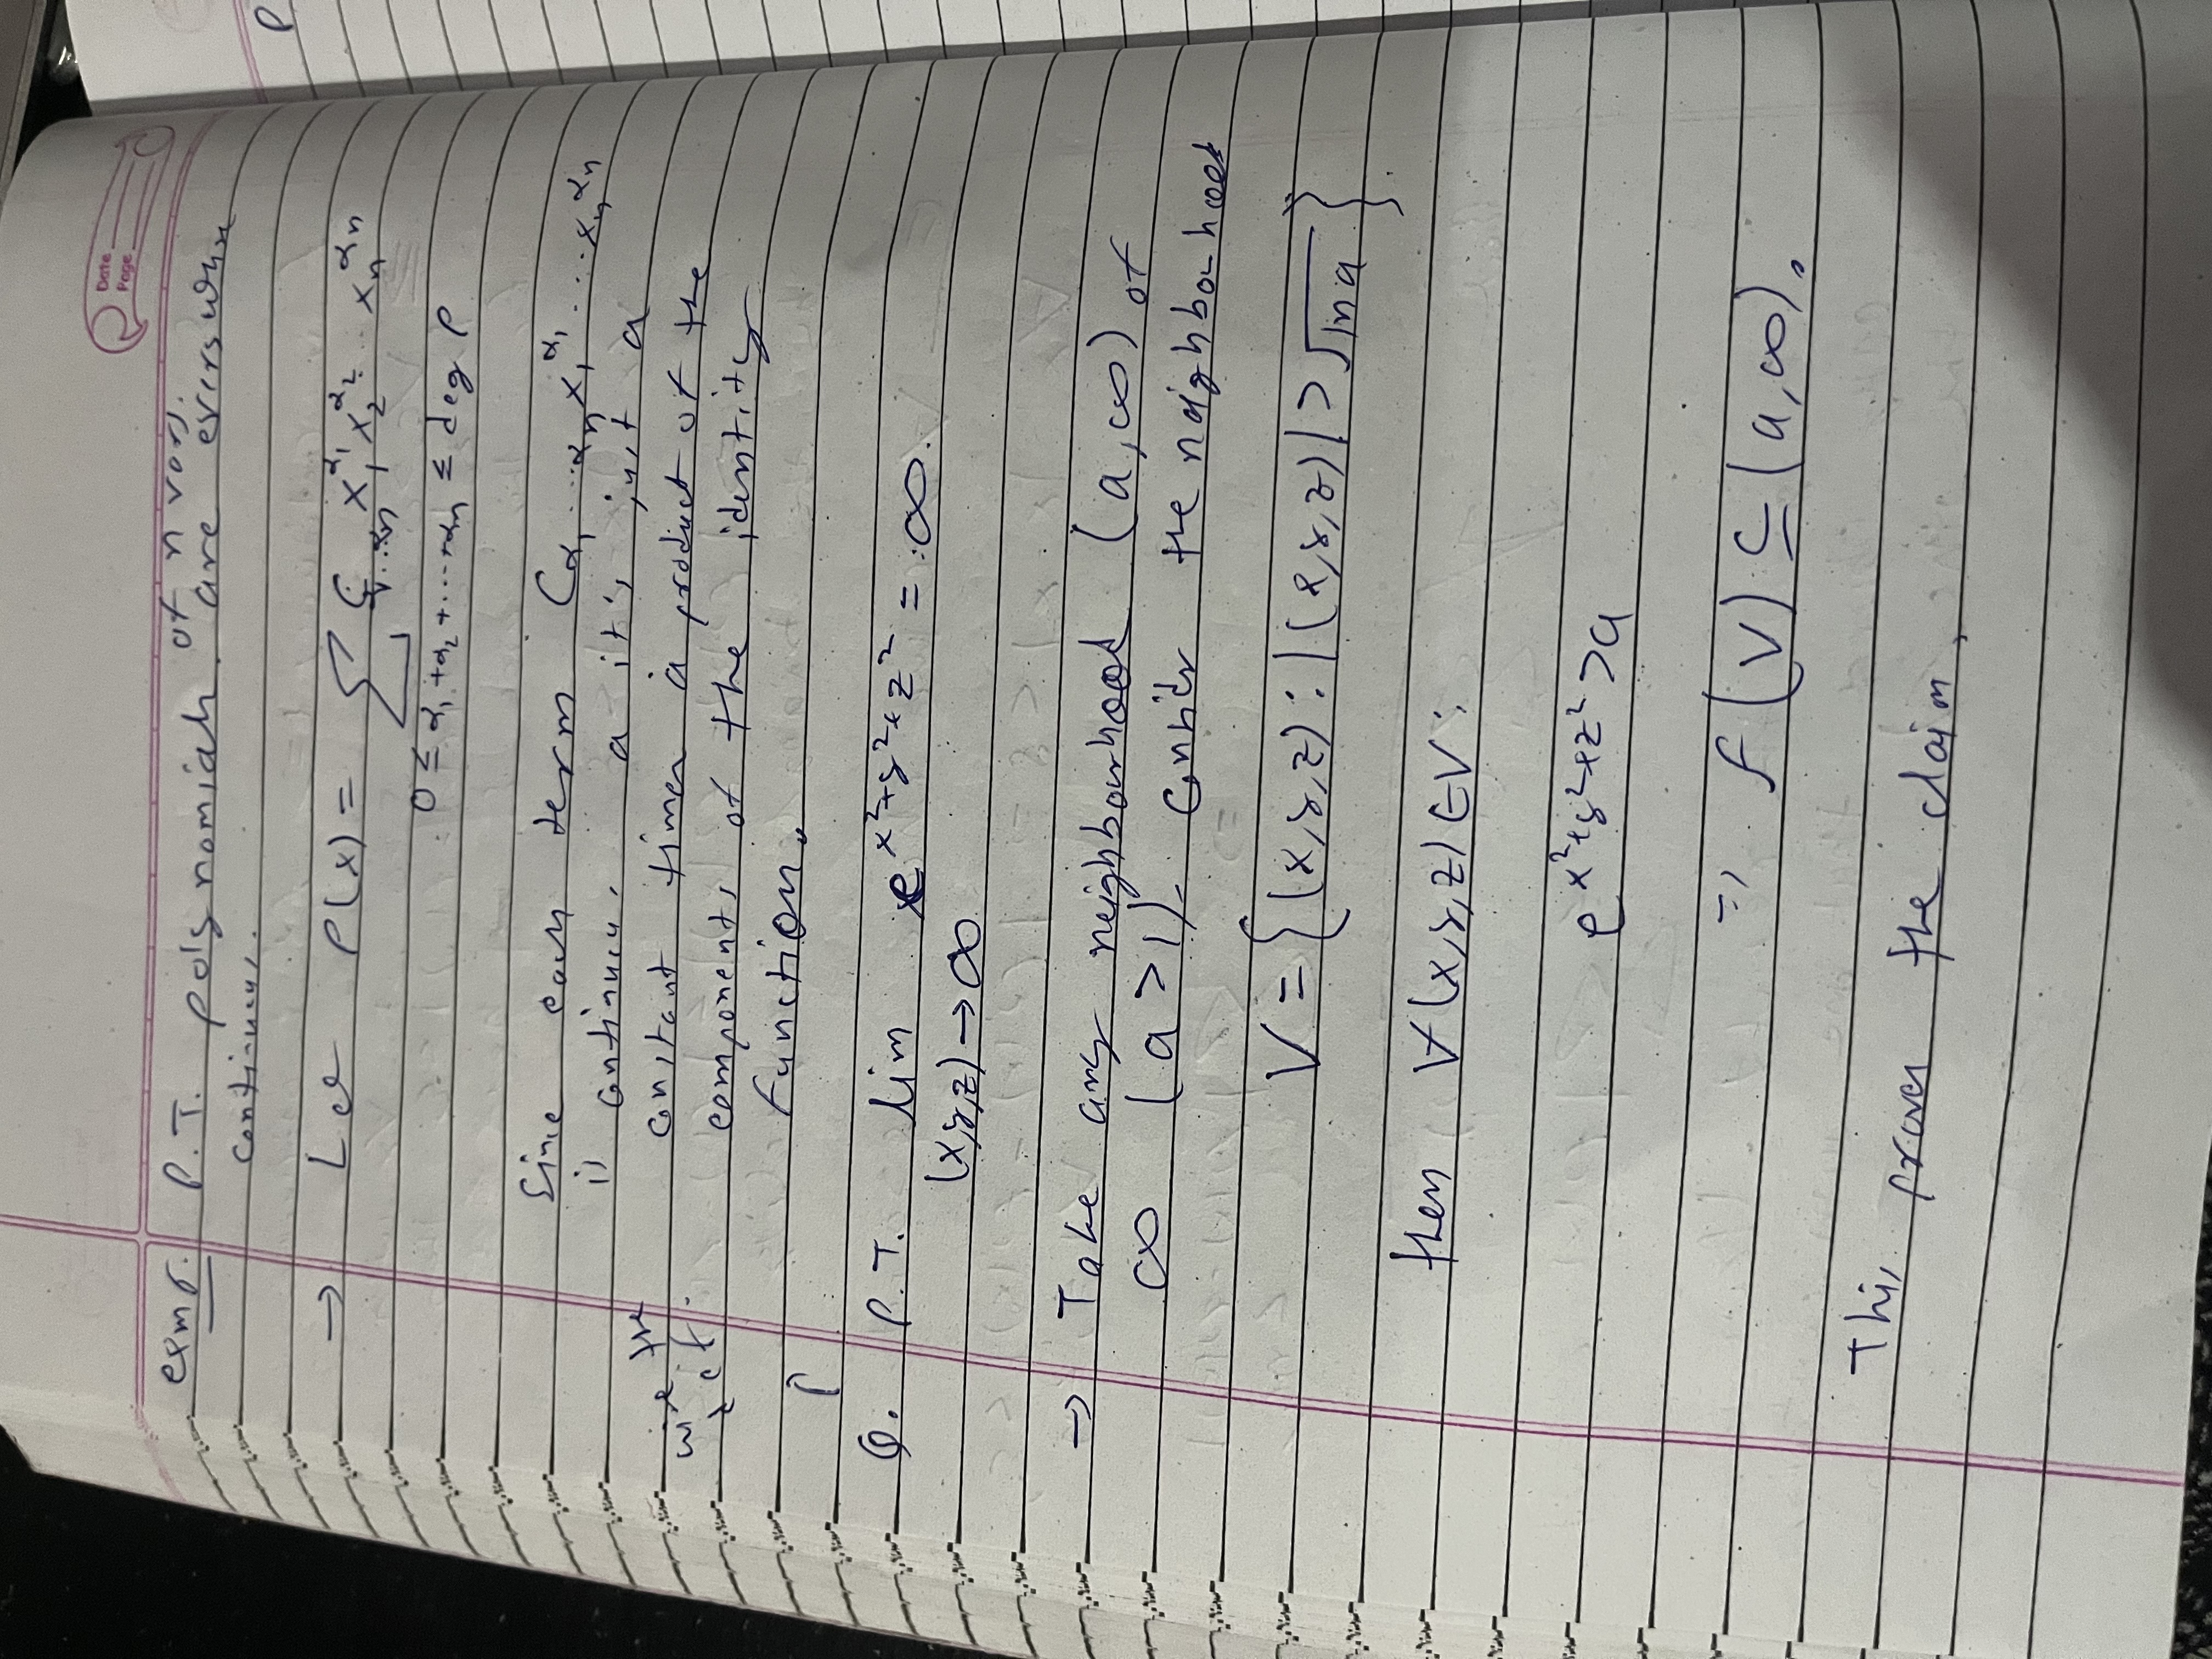 Date
Page
exm 6. P.T. polynomials of n vars. are everywhere
continuous.
→ Let P(x) = ∑ C_{α₁...αₙ} x₁^{α₁} x₂^{α₂} ... xₙ^{αₙ}
0 ≤ α₁ + α₂ + ... + αₙ ≤ deg P
Since each term C_{α₁...αₙ} x₁^{α₁} .... xₙ^{αₙ}
is continuous a it's just a
constant times a product of the
components of the identity
function.
the
Q. P.T. lim e^{x²+y²+z²} = ∞.
(x,y,z)→∞
→ Take any neighbourhood (a,∞) of
∞ (a>1). Consider the neighbourhood
V = {(x,y,z) : |(x,y,z)| > √ln a}.
then ∀(x,y,z) ∈ V:
e^{x²+y²+z²} > a
⇒ f(V) ⊆ (a,∞).
This proves the claim.
P